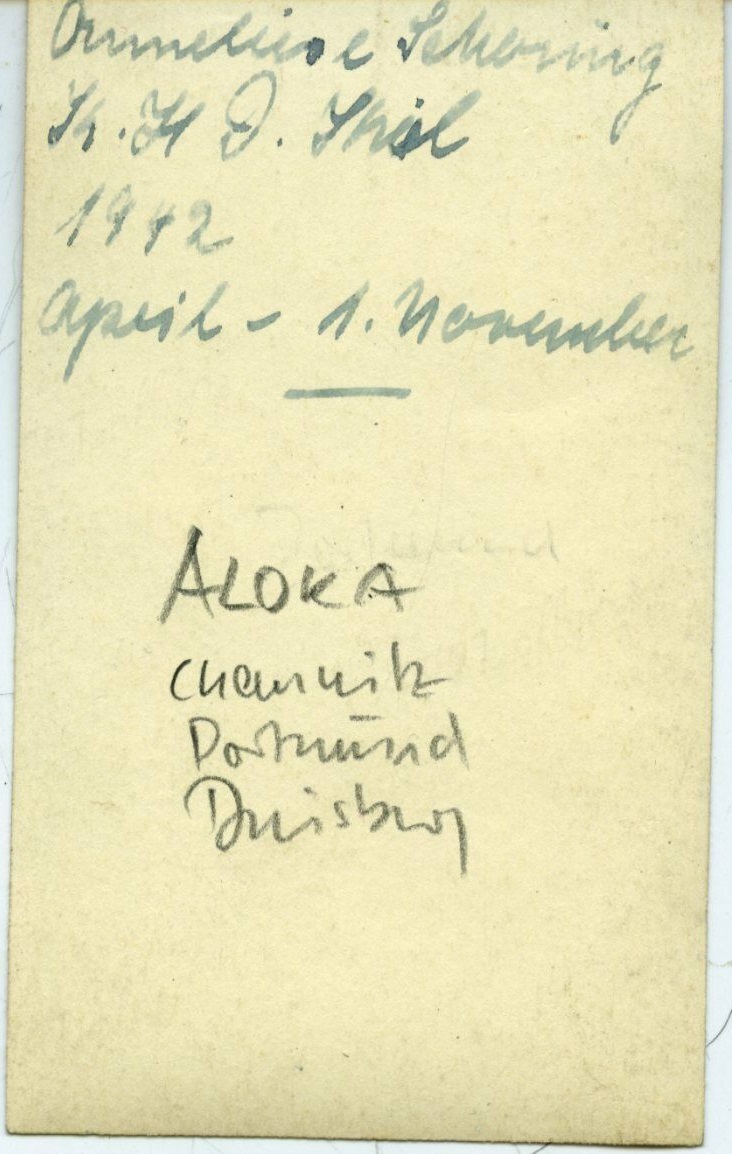 Anneliese Schoring
K. H D. Kiel
1942
April - 1. November
ALOKA
Chemnitz
Dortmund
Duisburg